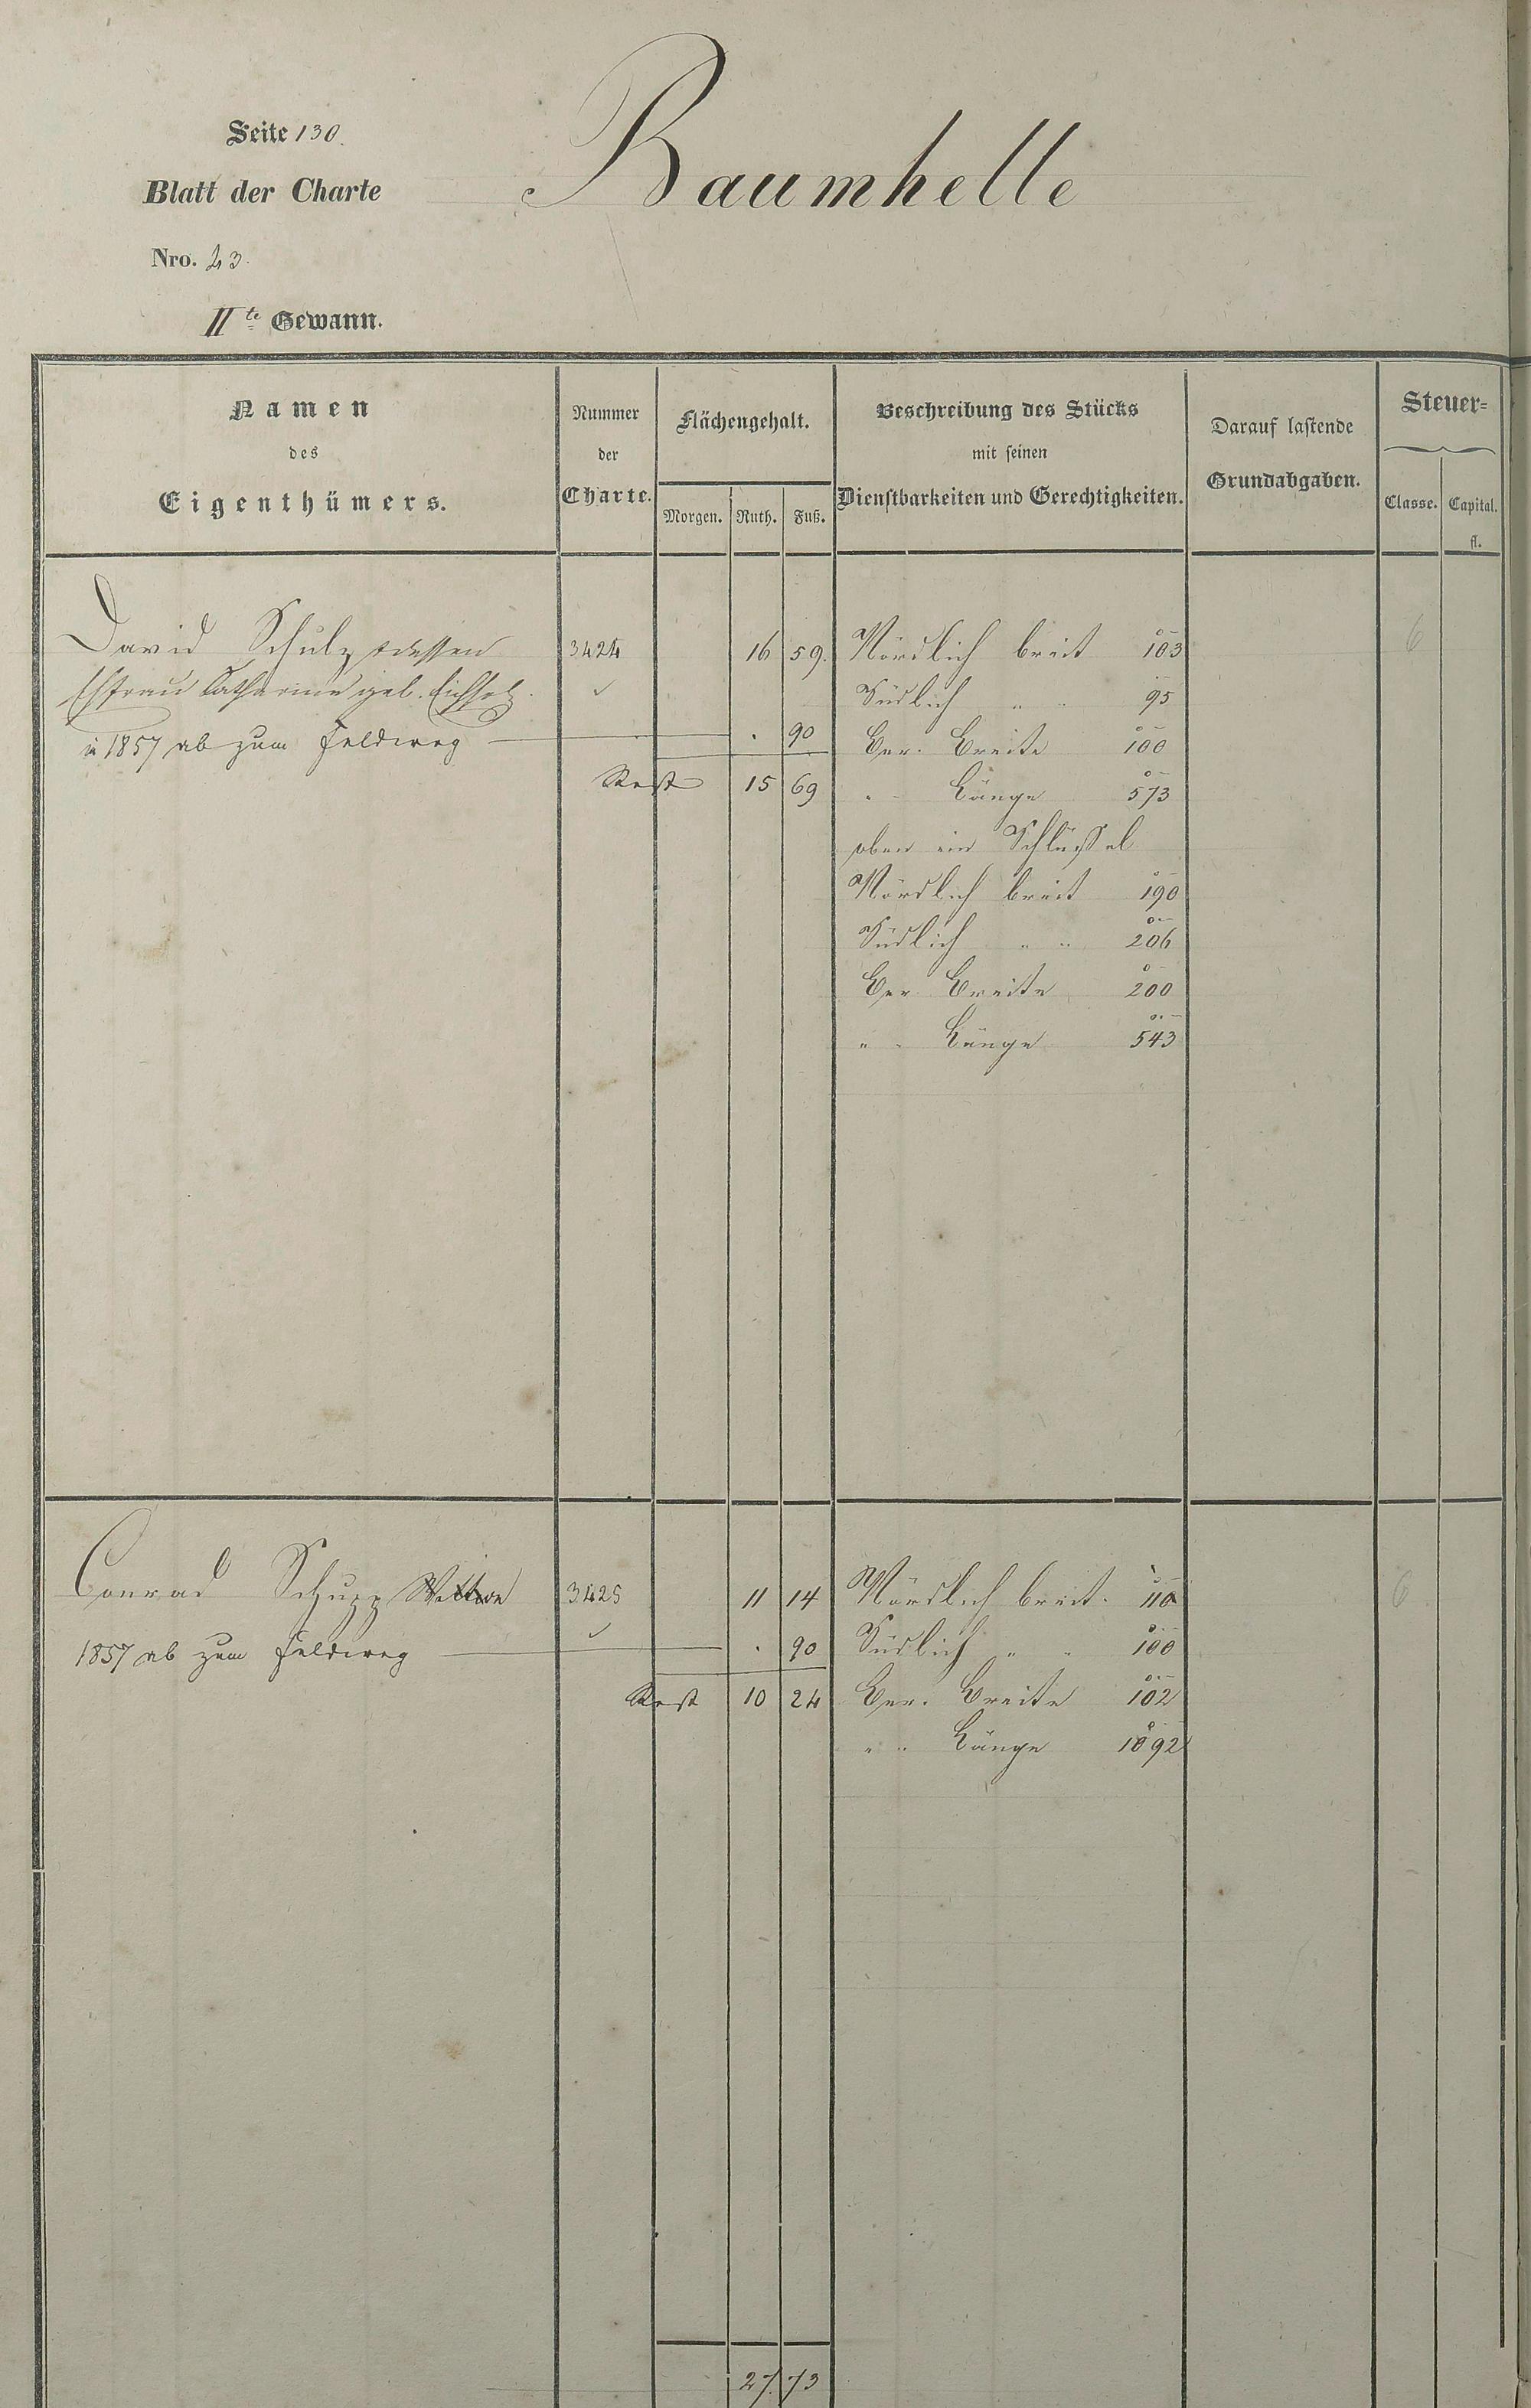 Seite 130.
Baumhelle
Blatt der Charte
Nro. 23.
IIte Gewann.
Namen
des
Eigenthümers.
Nummer
der
Charte.
Flächengehalt.
Morgen. Ruth. Fuß.
Beschreibung des Stücks
mit seinen
Dienstbarkeiten und Gerechtigkeiten.
Darauf lastende
Grundabgaben.
Steuer=
Classe. Capital.
fl.
David Schulz dessen 3424 16 59. Nördlich breit 103 6
Ehfrau Catharine geb. Eichholz. Südlich " " 95
in 1857 ab zum Feldweg . 90 Ber. Breite 100
Rest 15 69 " " Länge 573
oben ein Schlüssel
Nördlich breit 190
Südlich " " 206
Ber. Breite 200
" " Länge 543
Conrad Schupp Wittwe 3425 11 14 Nördlich breit. 110 6
1857 ab zum Feldweg . 90 Südlich " " 100
Rest 10 24 Ber. Breite 102
" " Länge 1092
27. 73